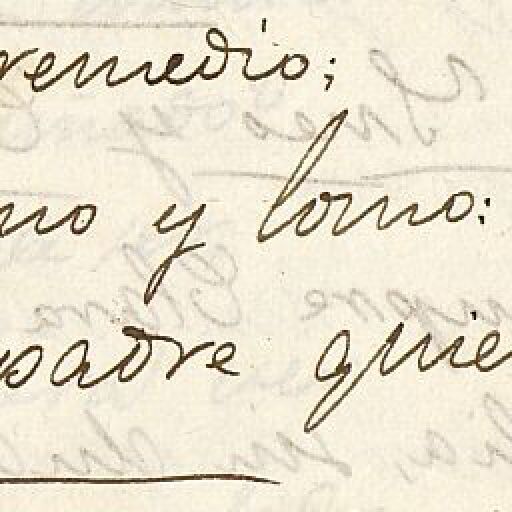 remedio;
no y lomo:
padre quie